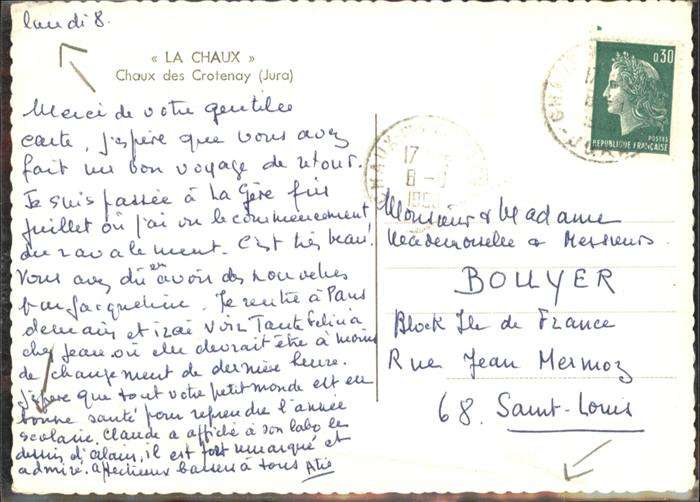 lundi 8.
« LA CHAUX »
Chaux des Crotenay (Jura)
Merci de votre gentille
carte, j'espère que vous avez
fait un bon voyage de retour.
Je suis passée à La Gère fin
juillet où j'ai vu le commencement
du ravalement. C'est très beau!
Vous avez dû en avoir des nouvelles
par Jacqueline. Je rentre à Paris
demain et irai voir Tante
chez Jean où elle devrait être à moins
de changement de dernière heure.
J'espère que tout votre petit monde est en
bonne santé pour reprendre l'année
scolaire. Claude a affiché à son labo le
dessin d'alain, il est fort remarqué et
admiré. affectueux baisers à tous
0,30
POSTES
REPUBLIQUE FRANÇAISE
CHAUX
17
8 - 9
JURA
Monsieur & Madame
Mademoiselle & Messieurs
BOUYER
Block Ile de France
Rue Jean Mermoz
68. Saint-Louis